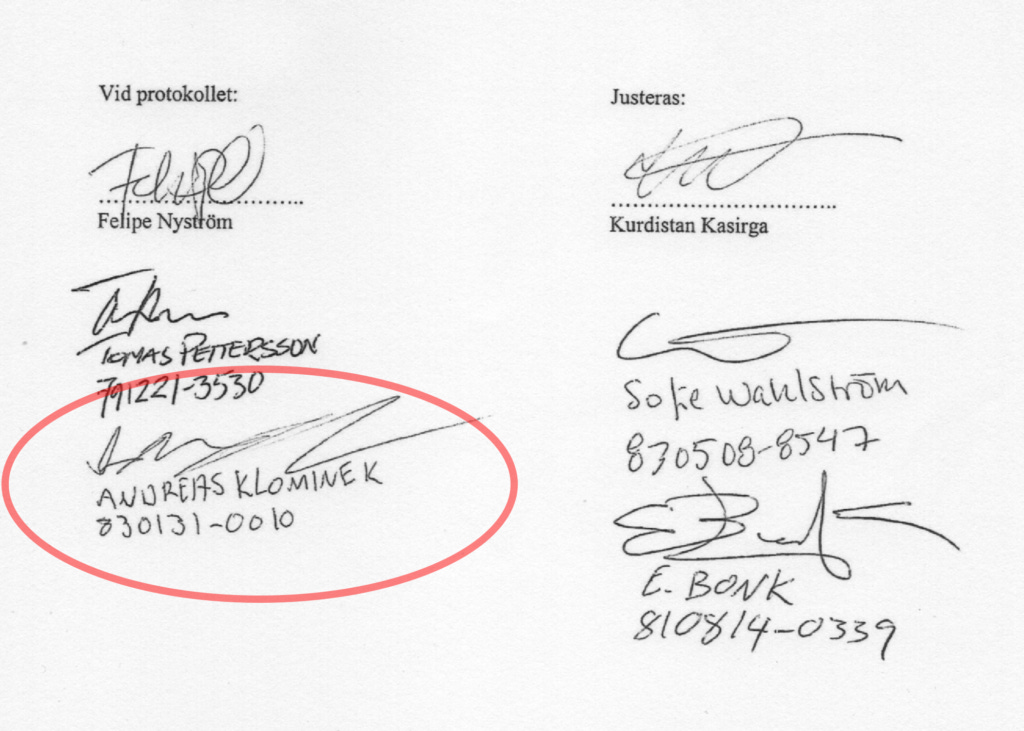 Vid protokollet:
Felipe
Felipe Nyström
TOMAS PETTERSSON
791221-3530
ANDREAS KLOMINEK
830131-0010
Justeras:
Kurdistan Kasirga
Sofie Wahlström
830508-8547
E. BONK
810814-0339